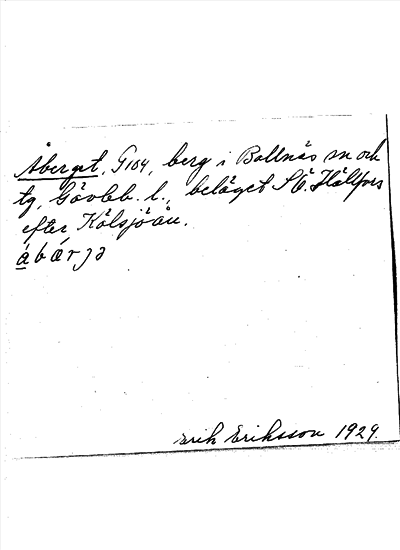 Åberget, G104, berg i Bollnäs sn och
tg, Gävleb. l., beläget S.Ö. Hällfors
efter Kölsjöån.
åbárjə
Erik Eriksson 1929.